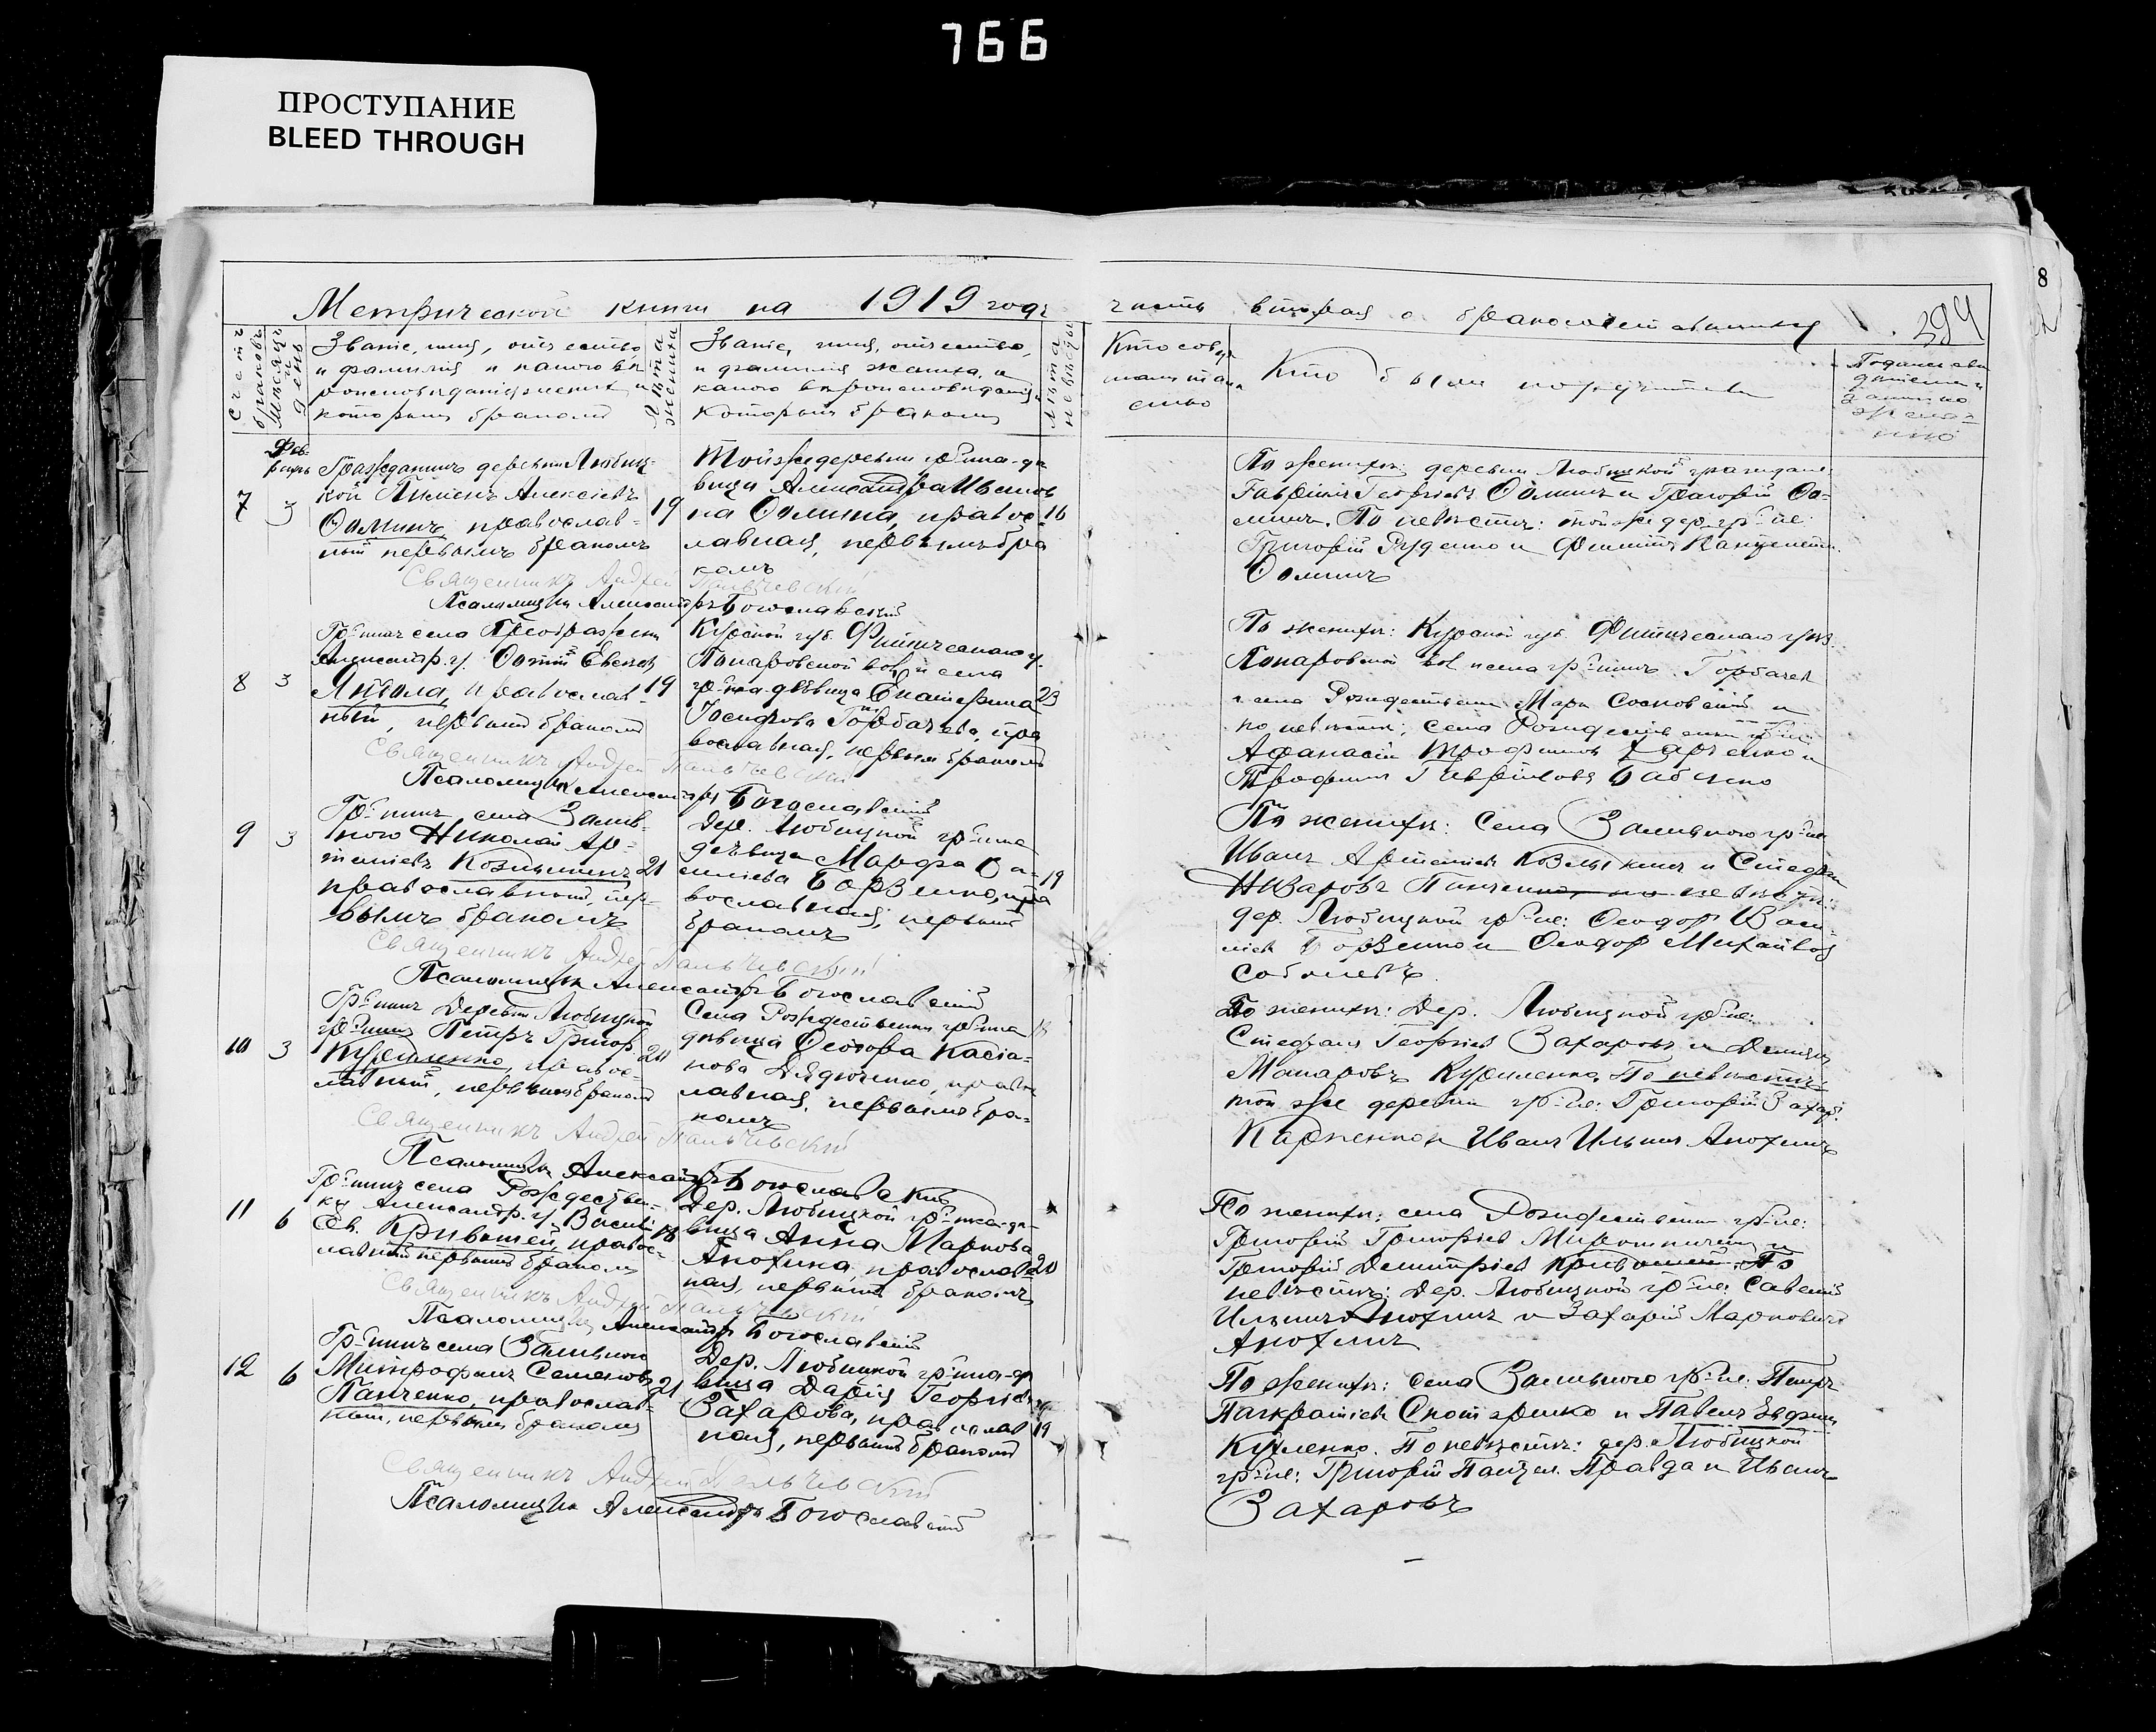 766
ПРОСТУПАНИЕ
BLEED THROUGH
8
Метрической книги на 1919 годъ
часть вторая о бракосочетавшихся
294
Счетъ браковъ
Мѣсяцъ и день
Званіе, имя, отчество,
и фамилія
которымъ бракомъ
Лѣта жениха
Званіе, имя, отчество,
и фамилія
которымъ бракомъ
Лѣта невѣсты
Кто совер
Кто были поручители
Фев-
раль
7
3
Гражданинъ деревни Любиц-
кой Пименъ Алексіевъ
Ѳоминъ, православ-
ный первымъ бракомъ
19
Той же деревни гр-нка-дѣ
вица Александра Иванов
на Ѳомина, правос-
лавная, первымъ бра
комъ
16
Священникъ Андрей Пальчевскій
Псаломщикъ Александръ Богославскій
По женихѣ: деревни Любицкой граждане
Гавріилъ Георгіевъ Ѳоминъ и Григорій Ѳо-
минъ. По невѣстѣ: той же дер. гр-не
Григорій Руденко и Филиппъ
Ѳоминъ
8
3
Гр-нинъ села Преображенки
Александр. у.
православ-
ный, первымъ бракомъ
19
Курской губ.
вол. и села
гр-нка-дѣвица Екатерина
Іосифова Горбачева, пра
вославная, первым бракомъ
23
Священникъ Андрей Пальчевскій
Псаломщикъ Александръ Богославскій
По женихѣ: Курской губ.
вол. и села гр-нинъ Горбачев
и села Рождественки Марк Сосновскій и
по невѣстѣ: села Рождественки гр-не
Афанасій Трофимов Харченко и
Трофимъ Гавріиловъ Бабенко
9
3
Гр-нинъ села Залив-
ного Николай Ар-
теміевъ Козмыкинъ
православный, пер-
вымъ бракомъ
21
Дер. Любицкой гр-нка
дѣвица Марфа Ва-
силіева Борзенко, пра
вославная, первымъ
бракомъ
19
Священникъ Андрей Пальчевскій
Псаломщикъ Александръ Богославскій
По женихѣ: Села Заливного гр-не
Иванъ Артеміев Козмыкинъ и Стефан
Панченко, по невѣстѣ:
дер. Любицкой гр-не: Ѳеодор Васи-
ліев Борзенко и Ѳеодор Михайлов
Соболевъ.
10
3
Гр-нинъ Деревни Любицкой
гр-нинъ Петръ Григор.
Куриленко, правос-
лавный, первымъ бракомъ
20
Села Рождественки гр-нка
дѣвица Ѳеодора Касіа-
нова Дядюченко, правос
лавная, первымъ бра-
комъ
18
Священникъ Андрей Пальчевскій
Псаломщикъ Александръ Богославскій
По женихѣ: Дер. Любицкой гр-не:
Стефанъ Георгіев Захаровъ и
Макаровъ Куриленко. По невѣстѣ:
той же деревни гр-не: Григорій Захар.
Карпенко и Иванъ Ильинъ Анохинъ
11
6
Гр-нинъ села Рождествен-
ки Александр. у. Василій
Сав. Кривошей, правос-
лавный первымъ бракомъ
18
Дер. Любицкой гр-нка-дѣ-
вица Анна Маркова
Анохина, православ
ная, первымъ бракомъ
20
Священникъ Андрей Пальчевскій
Псаломщикъ Александръ Богославскій
По женихѣ: села Рождественки гр-не:
Григорій Григоріев Мирошниченко и
Григорій Димитріев Кривошей. По
невѣстѣ: Дер. Любицкой гр-не: Савелій
Ильинъ Анохинъ и Захарій Марковичъ
Анохинъ
12
6
Гр-нинъ села Заливного
Митрофанъ Семеновъ
Панченко, православ-
ный, первымъ бракомъ
21
Дер. Любицкой гр-нка-дѣ
вица Дарія Георгіев
Захарова, православ
ная, первымъ бракомъ
19
Священникъ Андрей Пальчевскій
Псаломщикъ Александръ Богославскій
По женихѣ: села Заливного гр-не: Петръ
Панкратіевъ и Павелъ Евфим.
Куленко. По невѣстѣ: дер. Любицкой
гр-не: Григорій Правда и Иванъ
Захаровъ